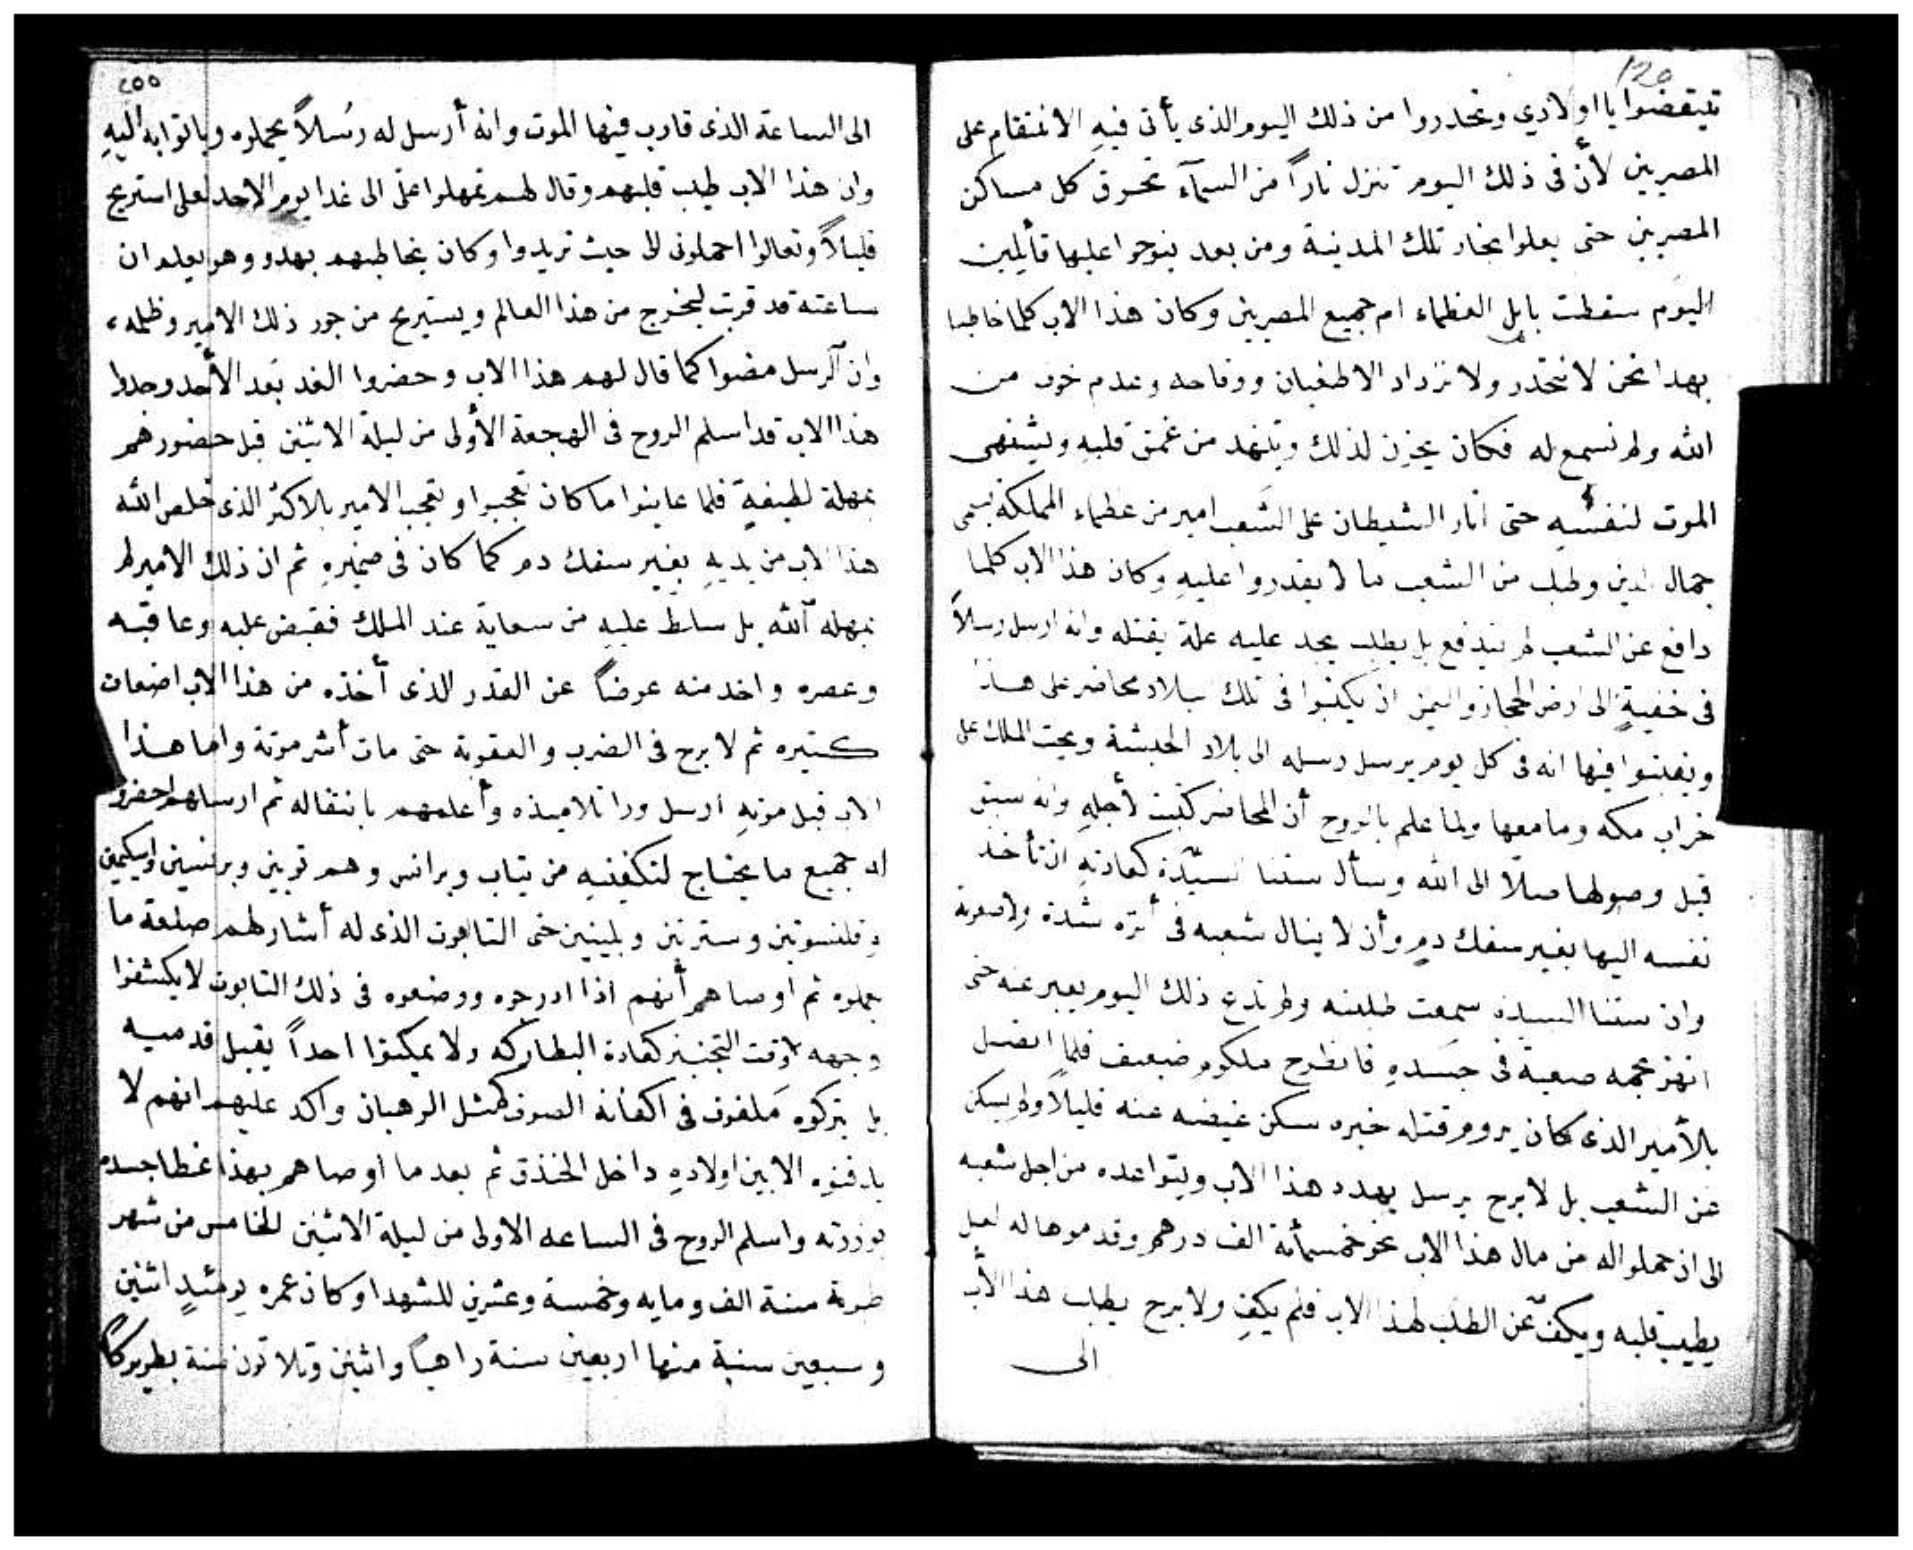 120
تتيقضوا يا اولادي وتحدروا من ذلك اليوم الذى يأتى فيهِ الانتقام على
المصريين لأن فى ذلك اليوم تنزل ناراً من السمآء تحرق كل مساكن
المصريين حتى يعلوا بخار تلك المدينة ومن بعد ينوحوا عليها قأيلين
اليوم سقطت بابل العظماء ام جميع المصريين وكان هذا الاب كلما خاطبنا
بهدا نحن لا نتحدر ولا نزداد الا طغيان ووقاحه وعدم خوف من
الله ولم نسمع له فكان يحزن لذلك ويتنهد من عمق قلبهِ ويشتهى
الموت لنفسهِ حتى اثار الشيطان على الشعب امير من عظماء المملكة يسمى
جمال الدين وطلب من الشعب ما لا يقدروا عليهِ وكان هذا الاب كلما
دافع عن الشعب لم يندفع بل يطلب يجد عليه علة يقتله وانه ارسل رسلاً
فى خفيةٍ الى ارض الحجاز واليمن ان يكتبوا فى تلك البلاد محاضر على هذا
ويفتنوا فيها انه فى كل يوم يرسل رسله الى بلاد الحبشة ويحت الملك على
خراب مكه وما معها ولما علم بالروح أن المحاضر كتبت لأجلهِ وانه سبق
قبل وصولها صلّا الى الله وسأل ستنا السيّدة كعادتهِ ان تأخذ
نفسه اليها بغير سفك دمٍ وأن لا ينال شعبه فى أثره شدة ولا صعوبة
وان ستنا السيدة سمعت طلبته ولم تدع ذلك اليوم يعبر عنه حتى
صعبة فى جسدهِ فانطرح ضعيف فلما اتصل
بالأمير الذى كان يروم قتله خبره سكن غيضه عنه قليلاً ولم يسكن
عن الشعب بل لا برح يرسل يهدد هذا الاب ويتواعده من اجل شعبه
الى ان حملوا له من مال هذا الاب نحو خمسمأئة الف درهم وقدموها له لعل
يطيب قلبه ويكفّ عن الطلب لهذا الاب فلم يكفِ ولا برح يطلب هذا الأب
الى
٢٥٥
الى الساعة الذى قارب فيها الموت وانه أرسل له رُسلاً يحملوه وياتوا به اليهِ
وان هذا الاب طيب قلبهم وقال لهم تمهلوا علىّ الى غدا يوم الاحد لعلى استريح
قليلاً وتعالوا احملونى الى حيث تريدوا وكان يخاطبهم بهدو وهو يعلم ان
ساعته قد قربت ليخرج من هذا العالم ويستريح من جور ذلك الامير وظلمه
وان الرسل مضوا كما قال لهم هذا الاب وحضروا الغد بعد الأحد وجدوا
هذا الاب قد اسلم الروح فى الهجعة الأولى من ليلة الاثنين قبل حضورهم
بمهلة لطيفةٍ فلما عاينوا ما كان تعجبوا وتعجب الامير بالاكثر الذى خلص الله
هذا الاب من يديهِ بغير سفك دم كما كان فى ضميرهِ ثم ان ذلك الامير لم
يمهله الله بل سلط عليهِ من سعاية عند الملك فقبض عليه وعاقبه
وعصره واخد منه عوضاً عن القدر الذى أخذه من هذا الاب اضعاف
كتيره ثم لا برح فى الضرب والعقوبة حتى مات أشر موتة واما هذا
الاب قبل موتهِ ارسل ورا تلاميذه وأعلمهم بانتقاله ثم ارسلهم احضروا
له جميع ما يحتاج لتكفنيهِ من تياب وبرانس وهم توبين وبرنسين واسكيمين
وقلنسوتين وسترتين وبلينين حتى التابوت الذى له أشار لهم صنعة ما
يعملوه ثم اوصاهم أنهم اذا ادرجوه ووضعوه فى ذلك التابوت لا يكشفوا
وجهه لاوقت التجنيز كعادة البطاركه ولا يمكنوا احداً يقبل قدميه
بل يتركوه ملفوف فى اكفانه الصوف كمثل الرهبان واكد عليهم انهم لا
يدفنوه الا بين اولادهِ داخل الخندق ثم بعد ما اوصاهم بهذا غطا جسده
بوزرته واسلم الروح فى الساعه الاولى من ليلة الاثنين الخامس من شهر
طوبة سنة الف ومايه وخمسة وعشرين للشهدا وكان عمره يومئيدٍ اثنين
وسبعين سنة منها اربعين سنة راهباً واثنين وتلاتون سنة بطريركاً